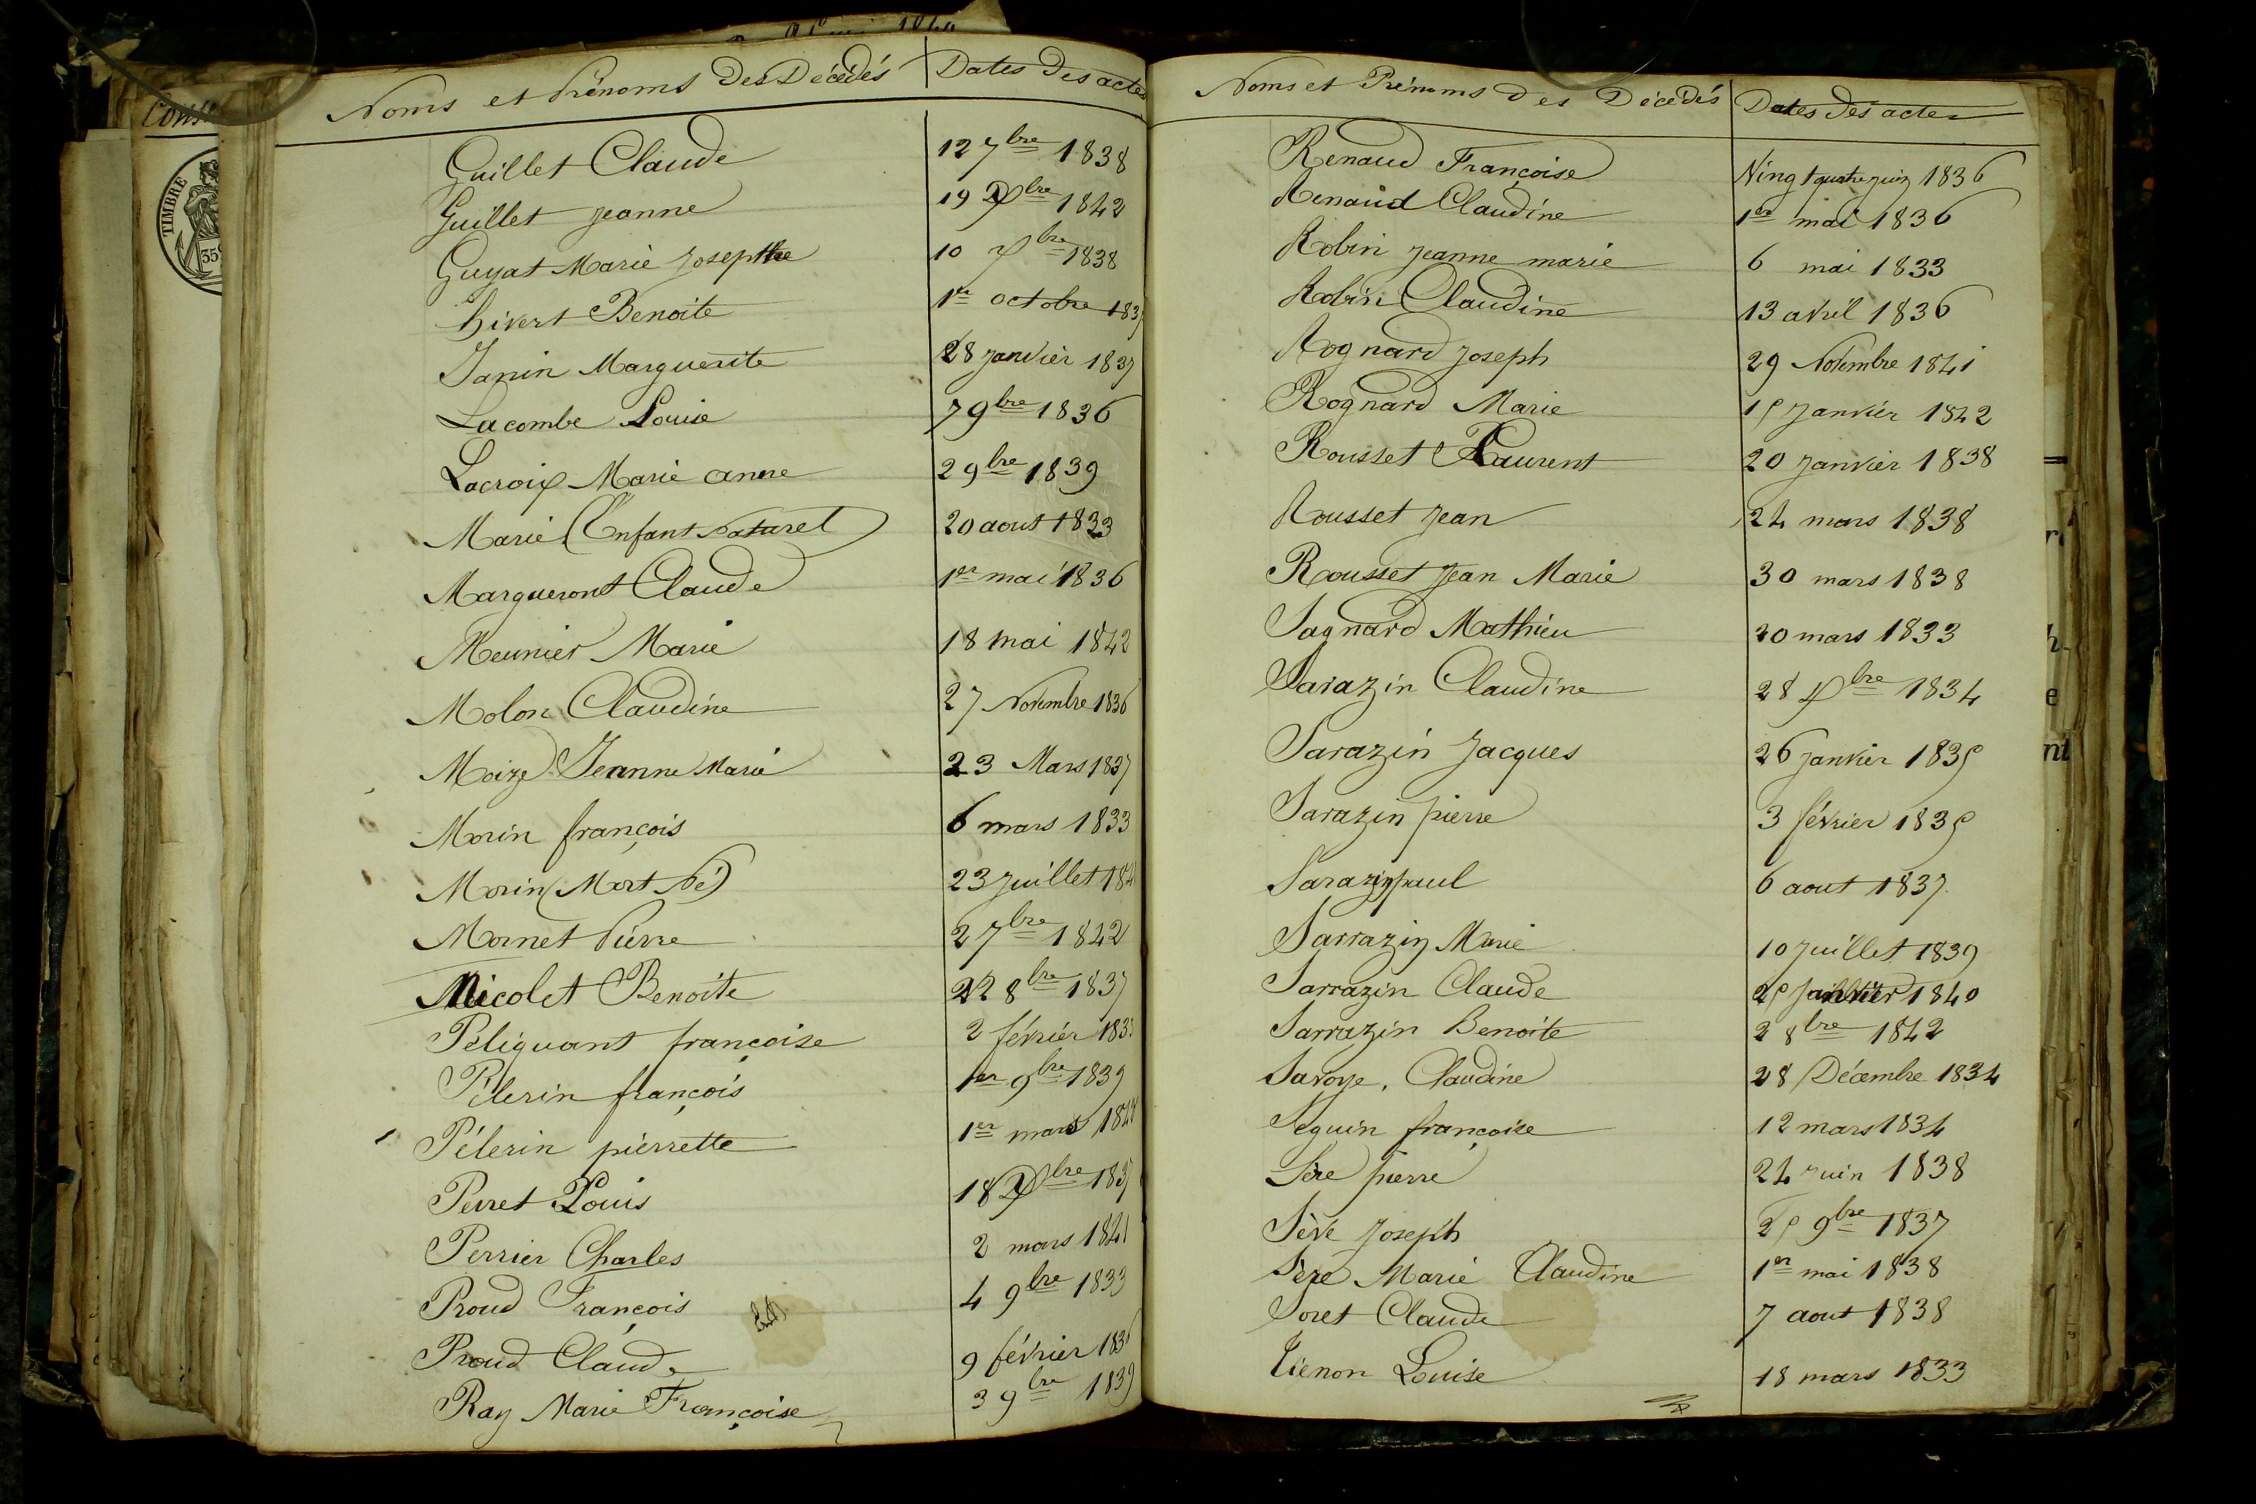 Noms et Prénoms des Décédés Dates des actes
Guillet Claude 12 7bre 1838
Guillet Jeanne 19 Xbre 1842
Guyat Marie Josephte 10 Xbre 1838
hivert Benoite 1er octobre 183
Janin Marguerite 28 janvier 1837
Lacombe Louise 7 9bre 1836
Lacroix Marie anne 2 9bre 1839
Marie (Enfant Naturel) 20 aout 1833
Margueront Claude 1er mai 1836
Meunier Marie 18 mai 1842
Molon Claudine 27 Novembre 1836
Moize Jeanne Marie 23 Mars 1837
Morin françois 6 mars 1833
Morin (Mort Né) 23 Juillet 184
Mornet Pierre 2 7bre 1842
Nicolet Benoite 22 8bre 1837
Péliquant françoise 2 février 183
Pélerin françois 1er 9bre 1839
Pélerin pierrette 1er mars
Perret Louis 18 Xbre 183
Perrier Charles 2 mars 1841
Proud François 4 9bre 1833
Proud Claude 9 février 183
Ray Marie Françoise 3 9bre 1839
Noms et Prénoms des Décédés Dates des actes
Renaud Françoise Vingt quatre juin 1836
Renaud Claudine 1er mai 1836
Robin Jeanne marie 6 mai 1833
Robin Claudine 13 avril 1836
Rognard Joseph 29 Novembre 1841
Rognard Marie 15 Janvier 1842
Rousset Laurent 20 Janvier 1838
Rousset Jean 24 mars 1838
Rousset Jean Marie 30 mars 1838
Sagnard Mathieu 20 mars 1833
Sarazin Claudine 28 Xbre 1834
Sarazin Jacques 26 janvier 1835
Sarazin pierre 3 février 1835
Sarazin paul 6 aout 1837
Sarrazin Marie 10 Juillet 1839
Sarrazin Claude 25 Janvier 1840
Sarrazin Benoite 2 8bre 1842
Savoye, Claudine 28 Décembre 1834
Séguin françoise 12 mars 1834
Sère pierre 24 Juin 1838
Sève Joseph 25 9bre 1837
Sère Marie Claudine 1er mai 1838
Soret Claude 7 aout 1838
Tienon Louise 18 mars 1833
TIMBRE